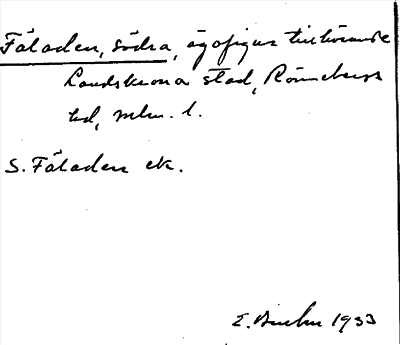 Fäladen, södra, ägofigur tillhörande
Landskrona stad, Rönnebergs
hd, mlm. l.
S. Fäladen ek.
E. 1933